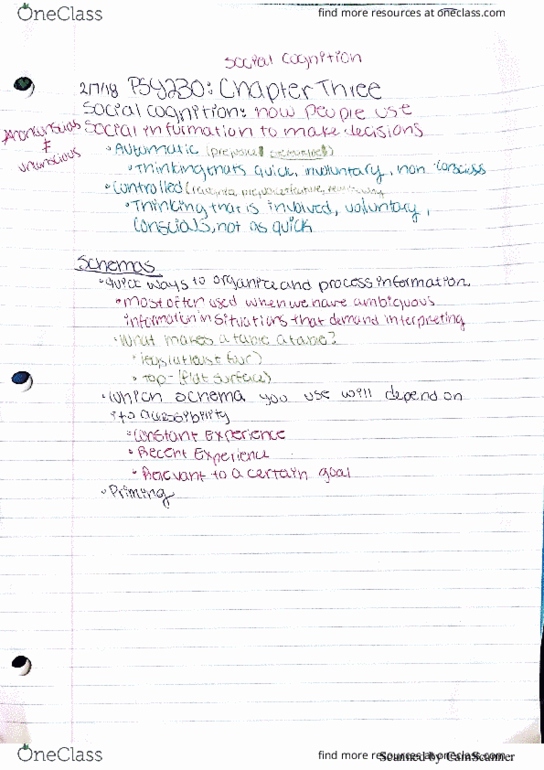 OneClass
find more resources at oneclass.com
Social Cognition
2/7/18 PSY230: Chapter Three
Social cognition: how people use
social information to make decisions
≠
unconscious
• Automatic
• Thinking thats quick, involuntary, non conscious
• Controlled
• Thinking that is involved, voluntary,
conscious, not as quick
Schemas
• Quick ways to organize and process information
• most often used when we have ambiguous
information in situations that demand interpreting
• What makes a table a table?
• legs (at least four)
• top - (flat surface)
• Which schema you use will depend on
its accessibility
• Constant Experience
• Recent Experience
• Relevant to a certain goal
• Priming
OneClass
find more resources at oneclass.com
Scanned by CamScanner